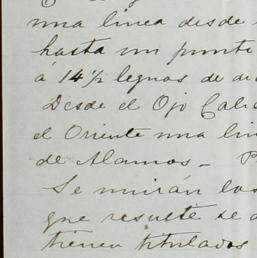 una linea desde
hasta un punto
á 14½ leguas de di
Desde el Ojo Cali
el Oriente una lin
de Alamos _ P
Se mirán los
que resulte se a
tienen titulados